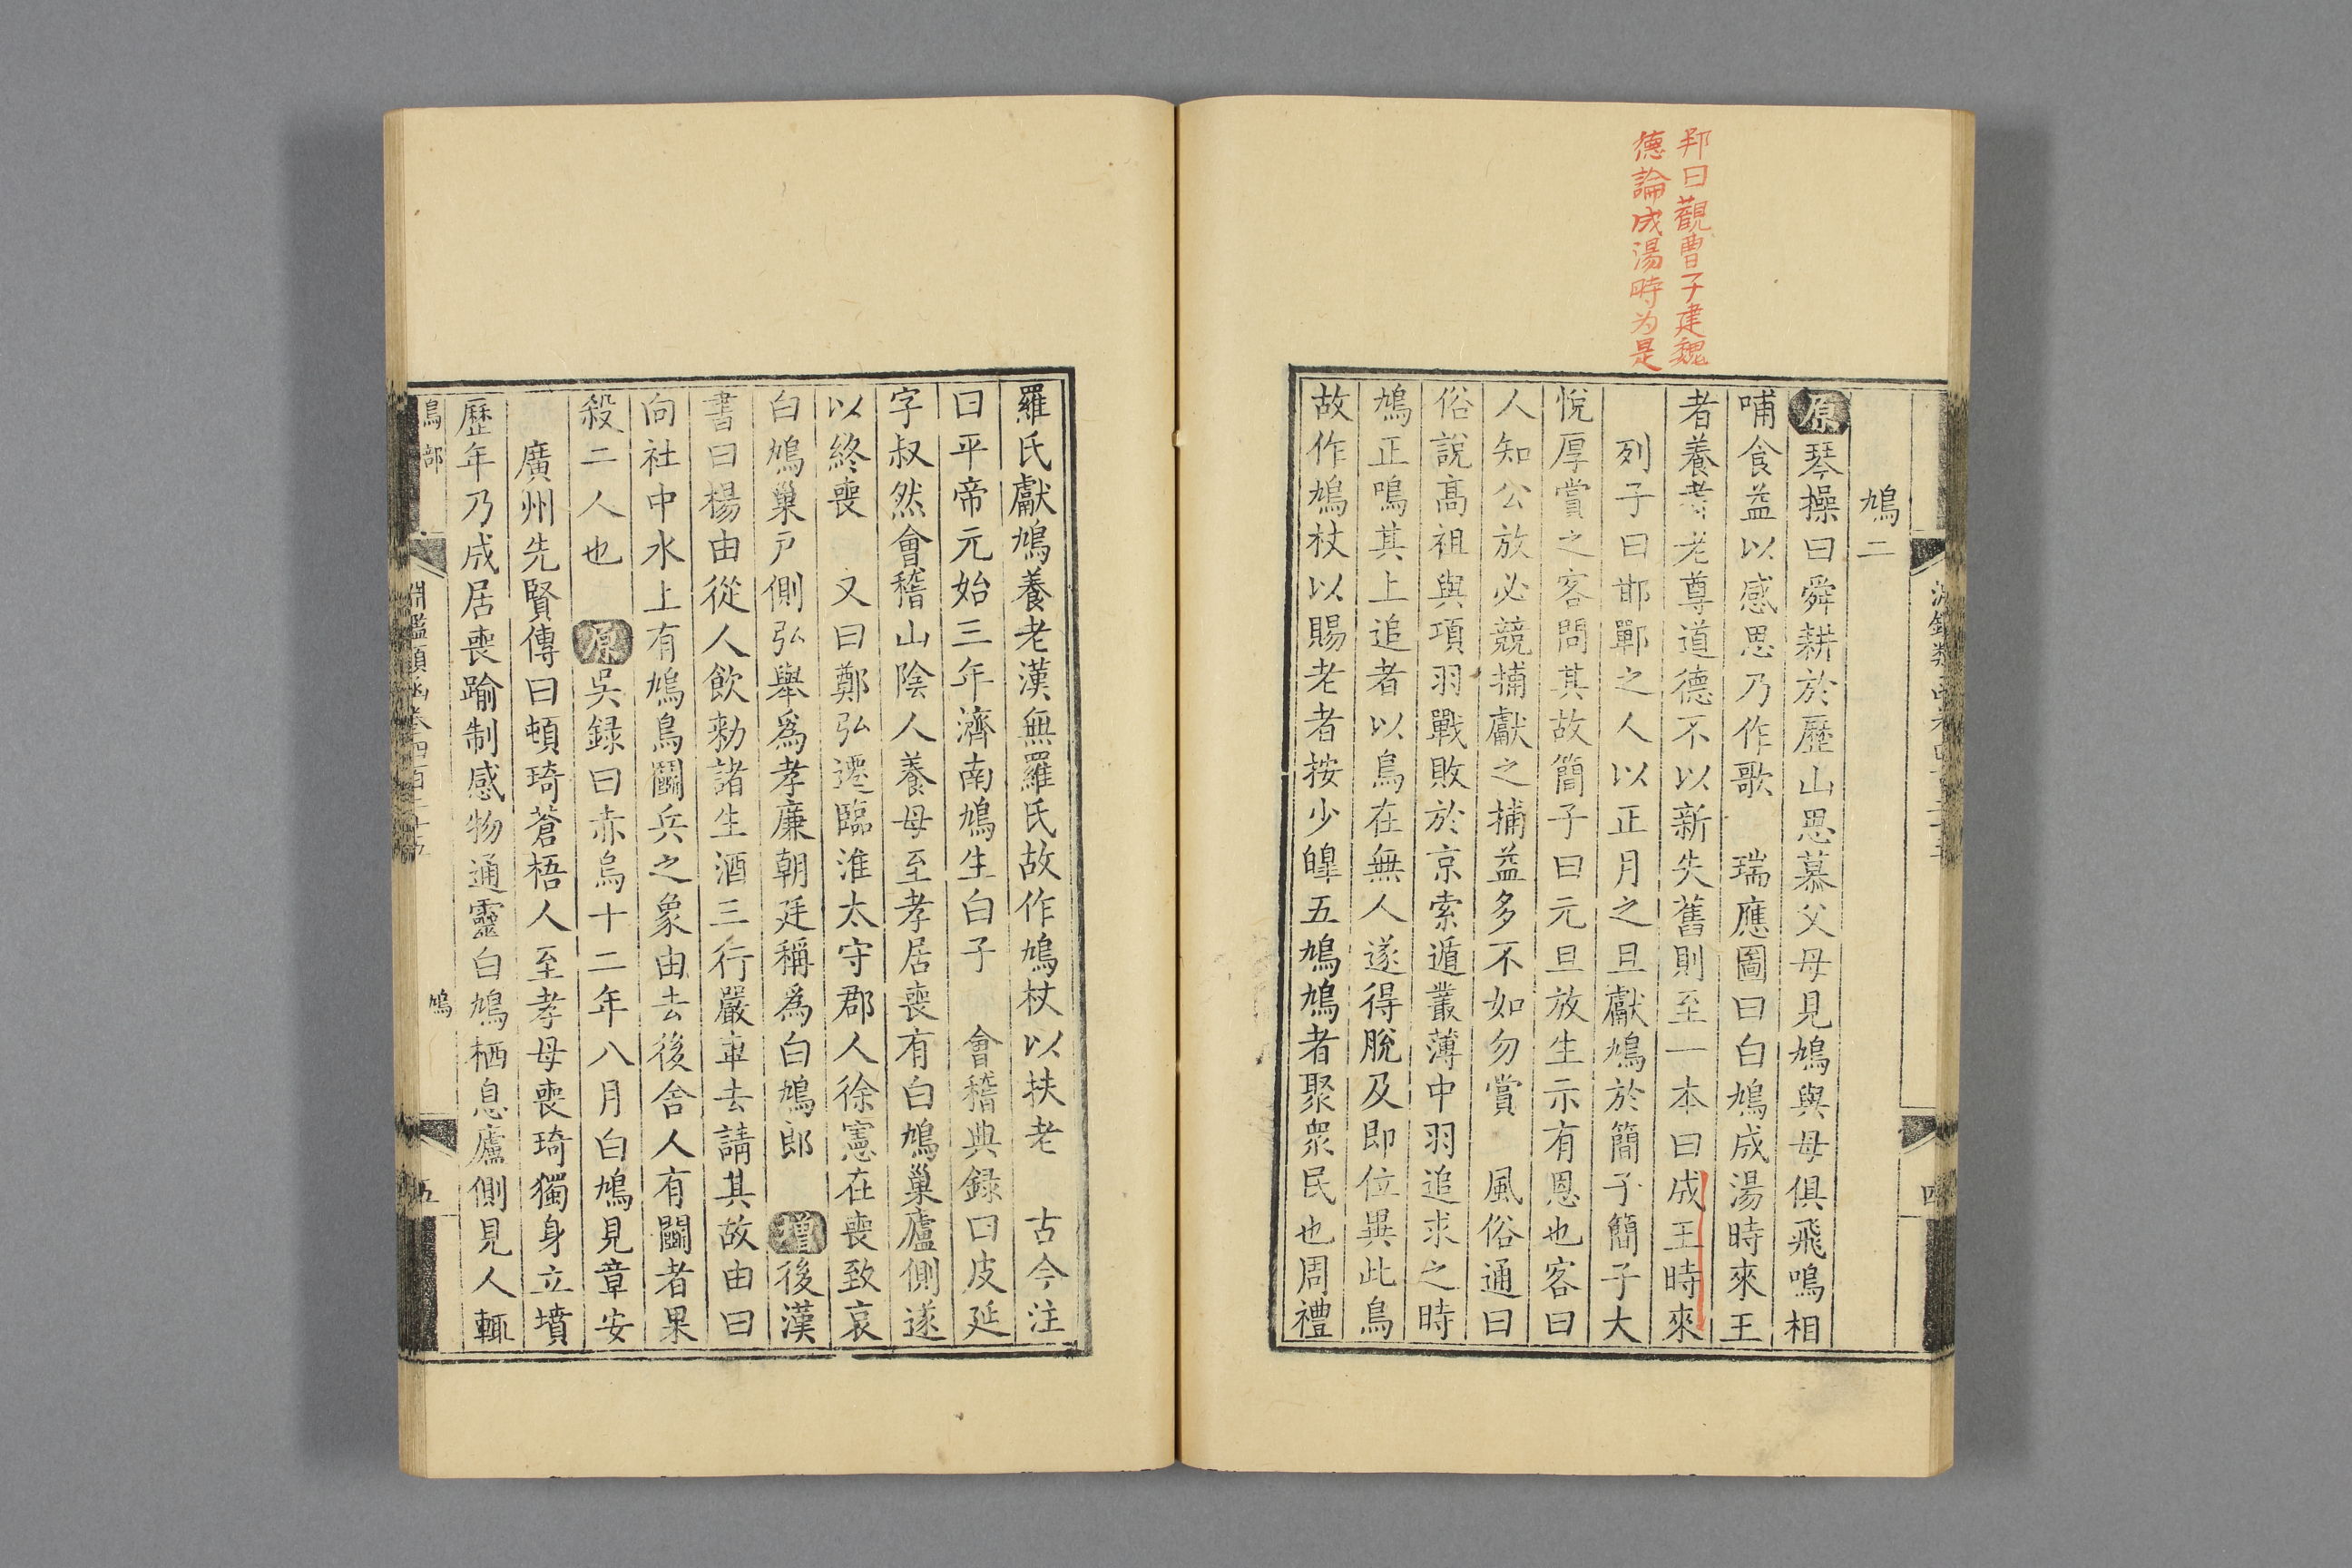 邦曰觀曹子建魏
德論成湯時为是
鳩二
原琴操曰舜耕於歷山思慕父母見鳩與母俱飛鳴相
哺食益以感思乃作歌　瑞應圖曰白鳩成湯時來王
者養耆老尊道德不以新失舊則至一本曰成王時來
列子曰邯鄲之人以正月之旦獻鳩於簡子簡子大
悅厚賞之客問其故簡子曰元旦放生示有恩也客曰
人知公放必競捕獻之捕益多不如勿賞　風俗通曰
俗說高祖與項羽戰敗於京索遁叢薄中羽追求之時
鳩正鳴其上追者以鳥在無人遂得脫及即位異此鳥
故作鳩杖以賜老者按少皞五鳩鳩者聚衆民也周禮
羅氏獻鳩養老漢無羅氏故作鳩杖以扶老　古今注
曰平帝元始三年濟南鳩生白子　會稽典録曰皮延
字叔然會稽山陰人養母至孝居喪有白鳩巢廬側遂
以終喪　又曰鄭弘遷臨淮太守郡人徐憲在喪致哀
白鳩巢戸側弘舉爲孝廉朝廷稱爲白鳩郎　增後漢
書曰楊由從人飲勑諸生酒三行嚴車去請其故由曰
向社中水上有鳩鳥鬬兵之象由去後舍人有鬬者果
殺二人也　原吳録曰赤烏十二年八月白鳩見章安
廣州先賢傳曰頓琦蒼梧人至孝母喪琦獨身立墳
歷年乃成居喪踰制感物通靈白鳩栖息廬側見人輒
鳥部
淵鑑類函卷四百二十五
鳩
五